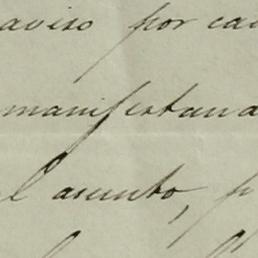 aviso por ca
manifestand
l asunto, p